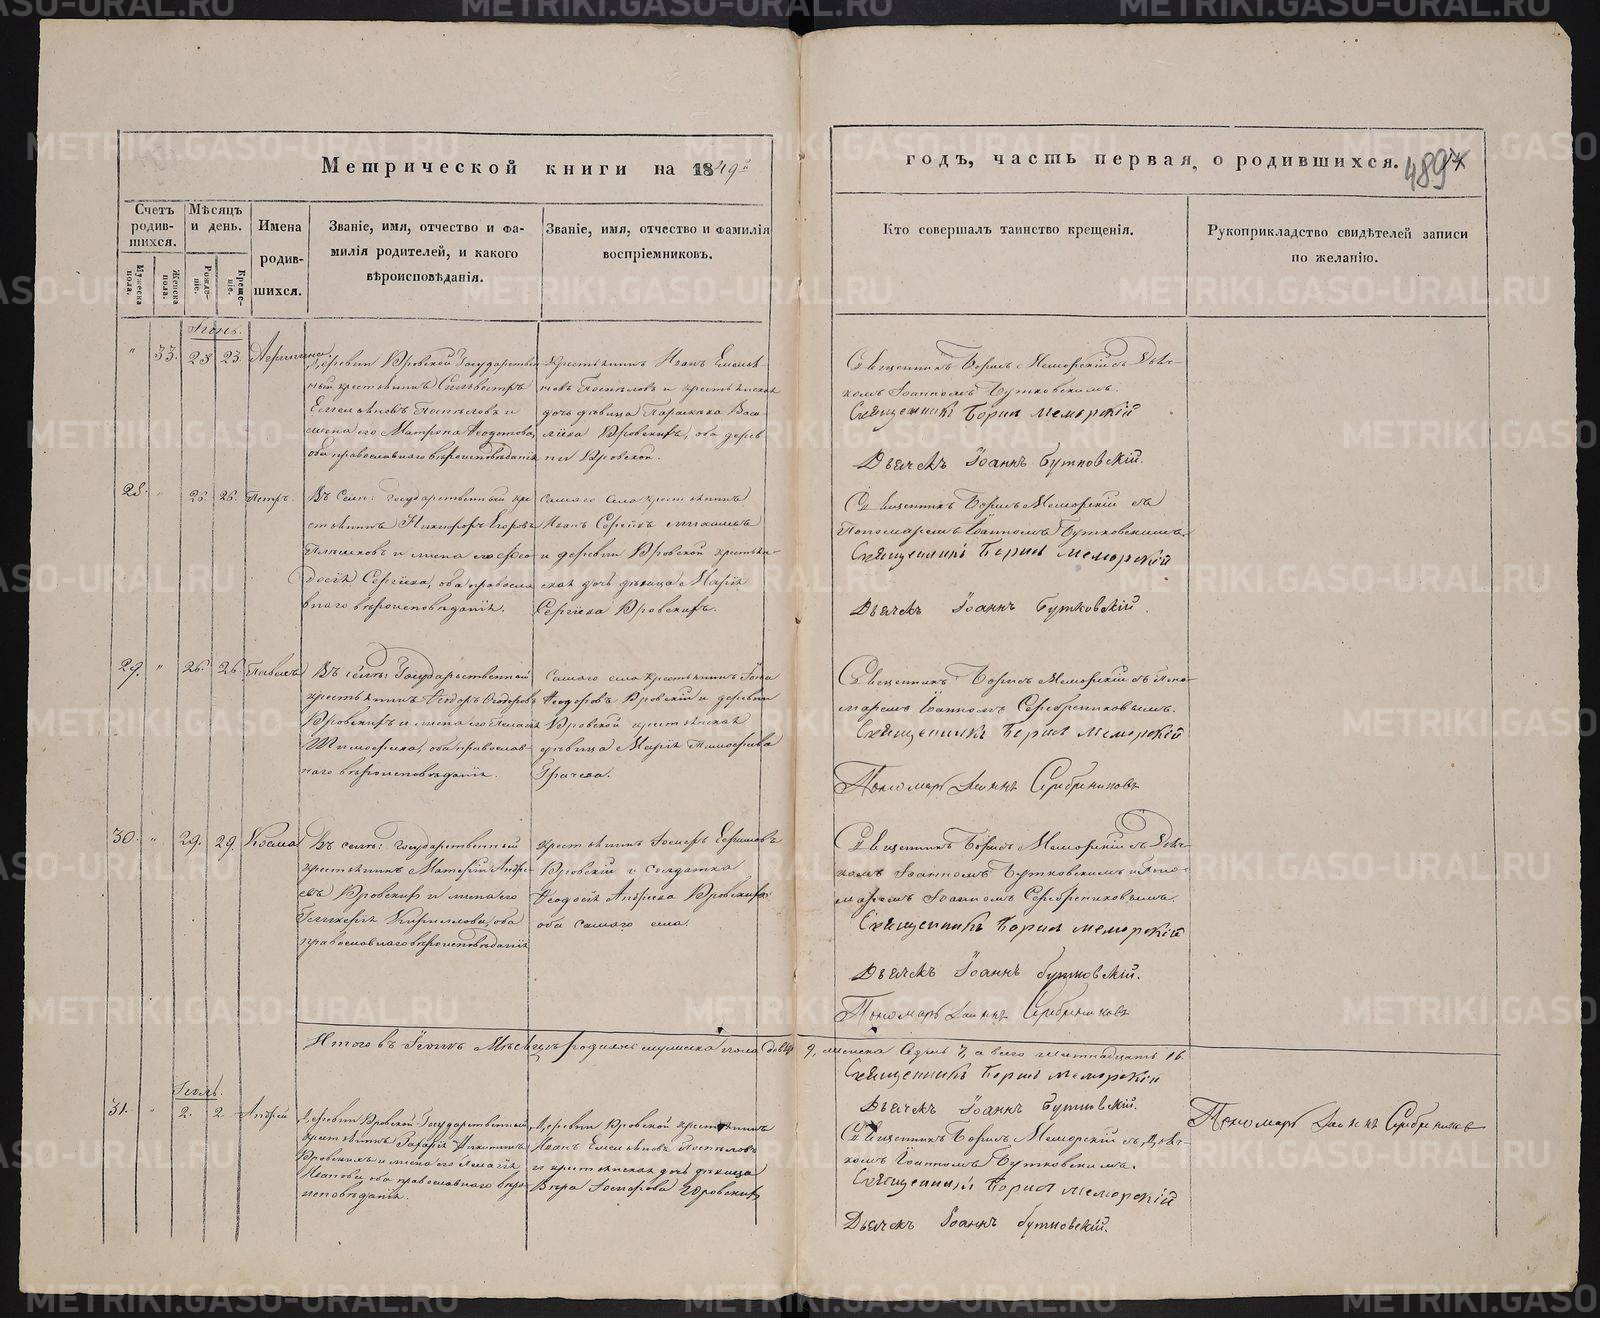 Метрической книги на 1849й
годъ, часть первая, о родившихся.
489
Счетъ родив-шихся.
Мѣсяцъ и день.
Имена родив-шихся.
Званіе, имя, отчество и фа-
милія родителей, и какого
вѣроисповѣданія.
Званіе, имя, отчество и фамилія
воспріемниковъ.
Кто совершалъ таинство крещенія.
Рукоприкладство свидѣтелей записи
по желанію.
Мужеска пола.
Женска пола.
Рожде-ніе.
Креще-ніе.
Іюнь.
" 33. 23 23.
деревни Юровской Государствен
ный крестьянинъ Силвестръ
Емельяновъ Поспѣловъ и
жена его Матрона Ѳедотова,
оба православнаго вѣроисповѣданія
крестьянинъ Иванъ Емелья
новъ Поспѣловъ и крестьянская
дочь дѣвица Параскева Васи-
лieва Юровскихъ, оба дерев
ни Юровской.
Священникъ Борисъ Меморскій съ Дьяч-
комъ Іоанномъ Бутковскимъ.
Священникъ Борисъ Меморскій
Дьячекъ Іоаннъ Бутковскій.
28. " 25. 25. Петръ.
Въ селѣ: Государственный кре
стьянинъ Никифоръ Егоровъ
и жена его Ѳео
досія Сергіева, оба правосла
внаго вѣроисповѣданія.
самаго села крестьянинъ
Иванъ Сергѣевъ
и деревни Юровской крестьян-
ская дочь дѣвица Марія
Сергіева Юровскихъ.
Священникъ Борисъ Меморскій съ
Пономаремъ Іоанномъ Бутковскимъ.
Священникъ Борисъ Меморскій
Дьячекъ Іоаннъ Бутковскій.
29. " 26. 26 Павелъ
Въ селѣ: Государственный
крестьянинъ Ѳеодоръ Ѳеодоровъ
Юровскихъ и жена его Пелагія
Тимофеева, оба православ-
наго вѣроисповѣданія.
самаго села крестьянинъ
Ѳеодоровъ Юровскій и деревни
Юровской крестьянская
дѣвица Марія Тимофеева
Грачева.
Священникъ Борисъ Меморскій съ Поно
маремъ Іоанномъ Серебрениковымъ.
Священникъ Борисъ Меморскій
Пономарь Іоаннъ Серебрениковъ
30. " 29. 29. Косма
Въ селѣ: Государственный
крестьянинъ Андре
евъ Юровскихъ и жена его
Гликерія Кириллова, оба
православнаго вѣроисповѣданія
крестьянинъ Ефимовъ
Юровскій и Солдатка
Ѳеодосія Андреева Юровскихъ
оба самаго села.
Священникъ Борисъ Меморскій съ Дьяч-
комъ Іоанномъ Бутковскимъ и Поно-
маремъ Іоанномъ Серебрениковымъ.
Священникъ Борисъ Меморскій
Дьячекъ Іоаннъ Бутковскій.
Пономарь Іоаннъ Серебрениковъ
Итого въ Іюнѣ Мѣсяцѣ родилось мужеска пола девять 9, женска Седмь 7, а всего шестнадцать 16.
Священникъ Борисъ Меморскій
Дьячекъ Іоаннъ Бутковскій.
Пономарь Іоаннъ Серебрениковъ
Іюль.
31. " 2. 2 Андрей
Деревни Юровской Государственный
крестьянинъ Никитинъ
Юровскихъ и жена его Пелагія
Иванова, оба православнаго вѣро-
исповѣданія.
Деревни Юровской крестьянинъ
Иванъ Емельяновъ Поспѣловъ
и крестьянская дочь дѣвица
Вѣра Юровскихъ
Священникъ Борисъ Меморскій съ Дьяч-
комъ Іоанномъ Бутковскимъ.
Священникъ Борисъ Меморскій
Дьячекъ Іоаннъ Бутковскій.
METRIKI.GASO-URAL.RU